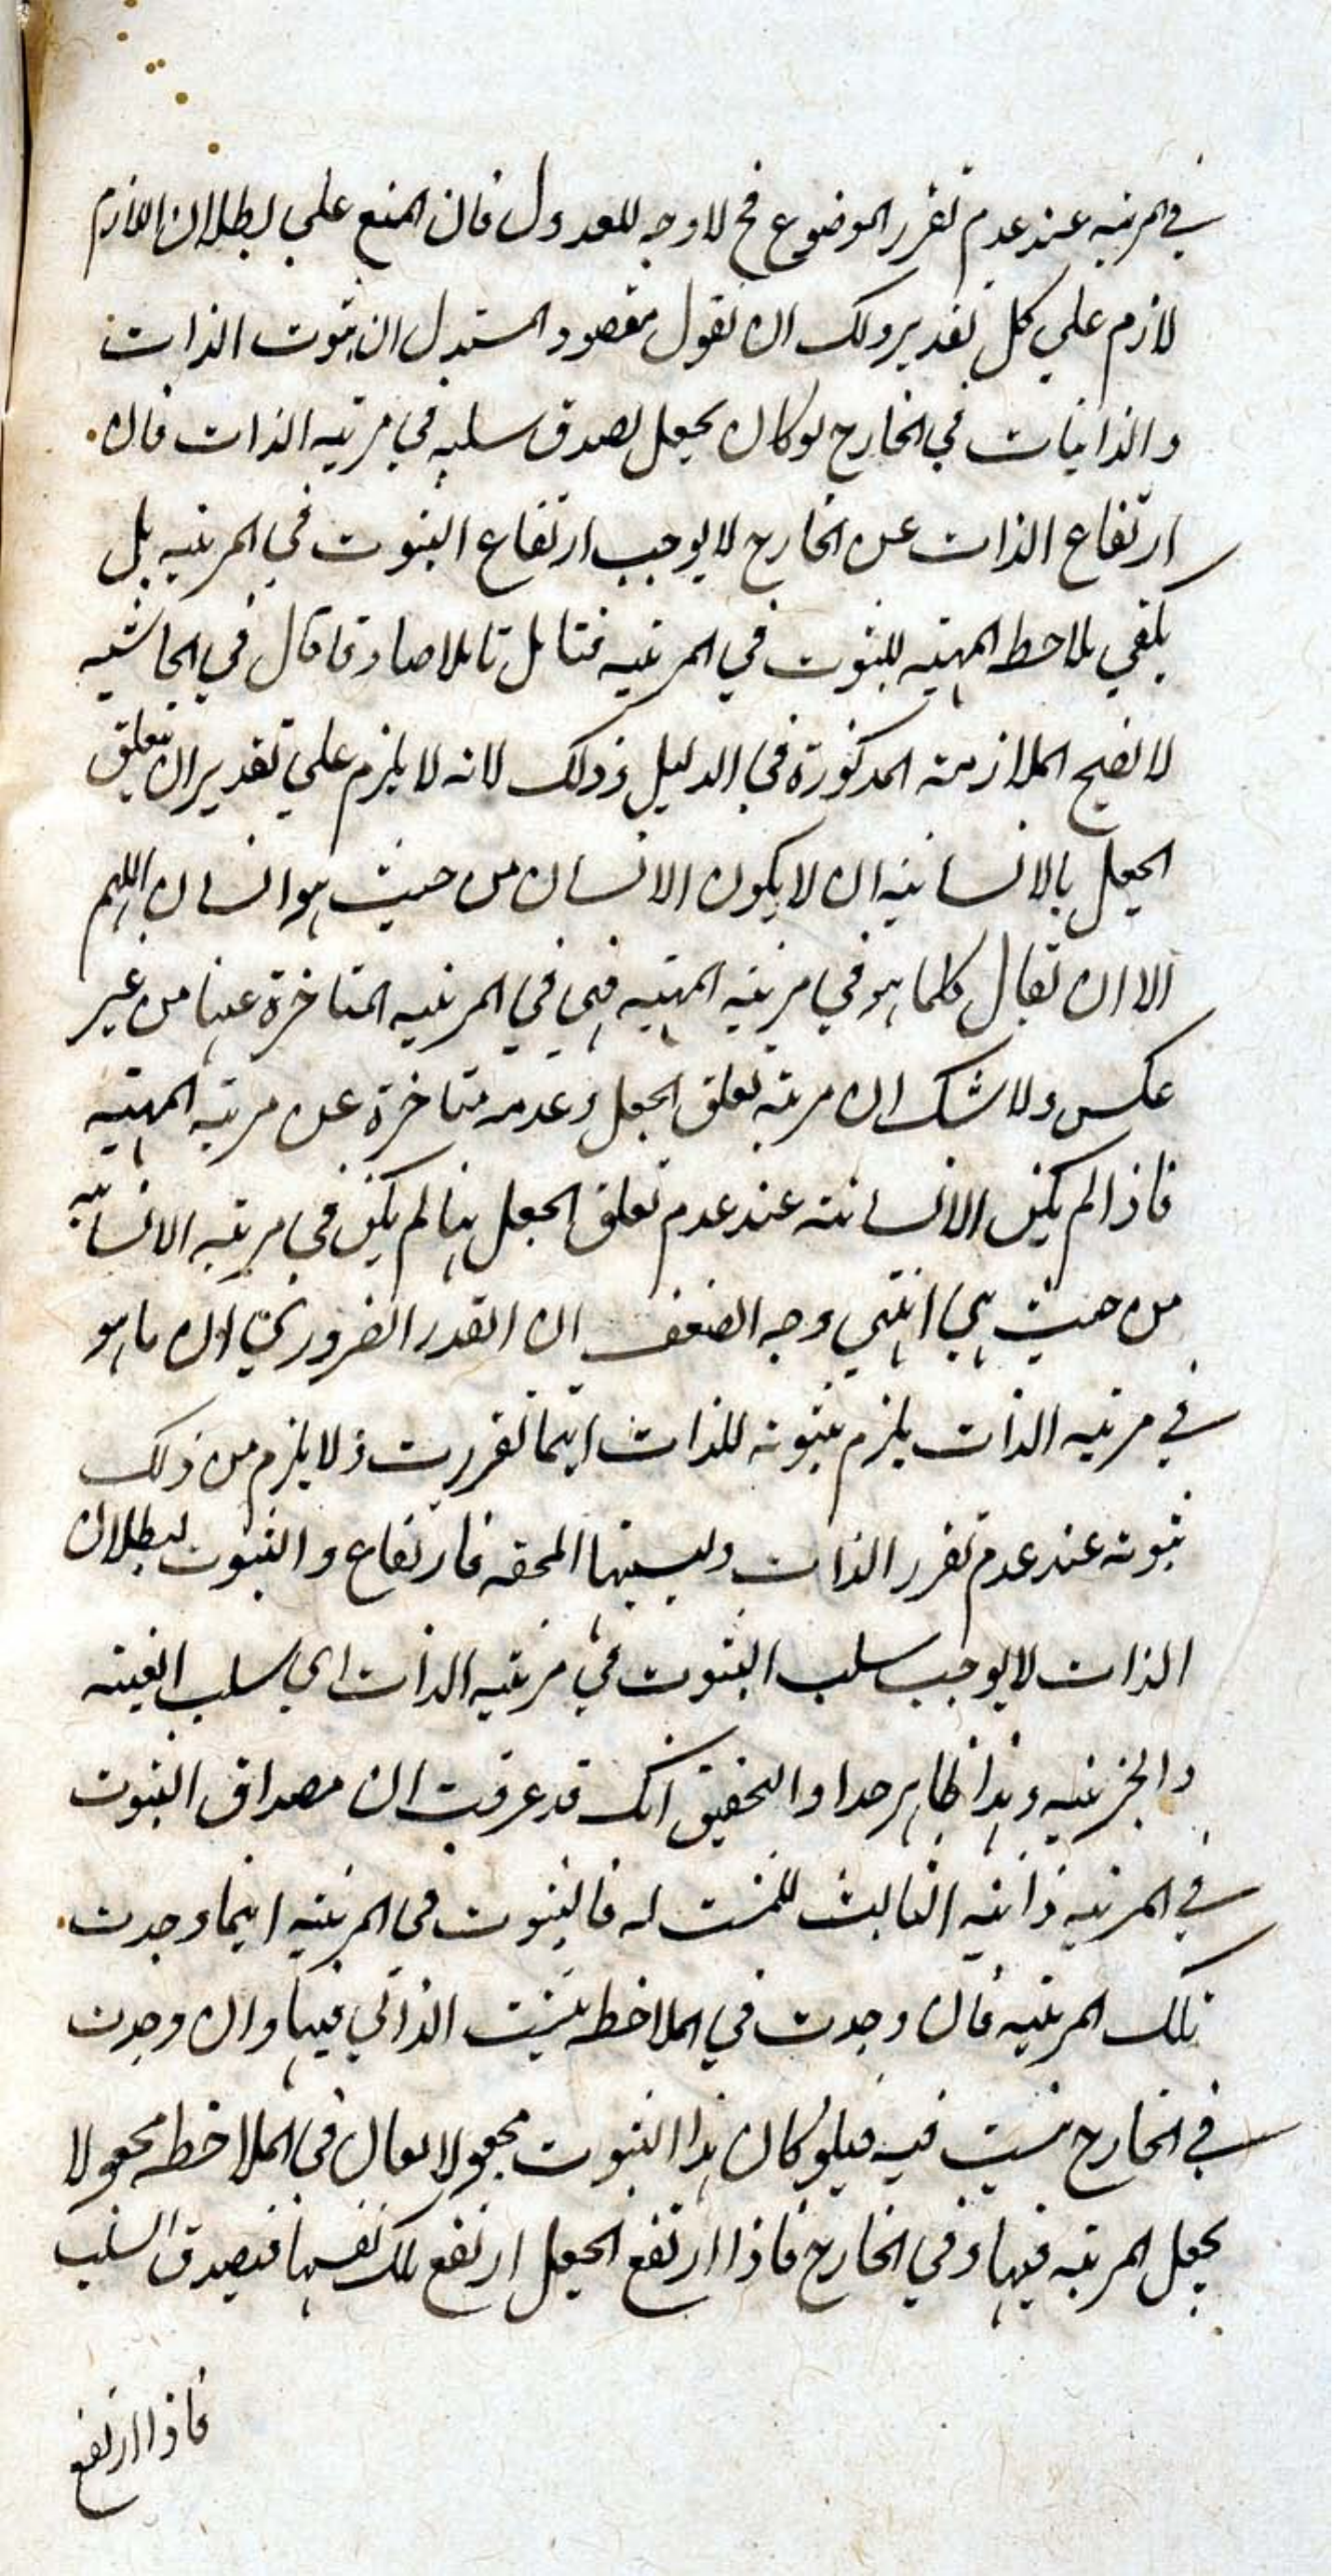 في المرتبه عند عدم تقرر الموضوع فح لا وجه للعدول فان المنع علي بطلان اللازم
لازم علي كل تقدير ولك ان تقول مقصود المستدل ان ثبوت الذات
والذاتيات في الخارج لو كان بجعل لصدق سلبه في مرتبه الذات فان
ارتفاع الذات عن الخارج لا يوجب ارتفاع الثبوت في المرتبه بل
يكفي ملاحظه المهيه للثبوت في المرتبه فتامل تاملا صادقا قال في الحاشيه
لا تصح الملازمة المذكورة في الدليل وذلك لانه لا يلزم علي تقدير ان تعلق
الجعل بالانسانيه ان لا يكون الانسان من حيث هو انسان اللهم
الا ان يقال كلما هو في مرتبه المهيه فهي في المرتبه المتاخرة عنها من غير
عكس ولا شك ان مرتبه تعلق الجعل وعدمه متاخرة عن مرتبه المهيه
فاذا لم يكن الانسانيه عند عدم تعلق الجعل بها لم يكن في مرتبه الانسانيه
من حيث هي انتهي وجه الضعف ان القدر الضروري ان ما هو
في مرتبه الذات يلزم ثبوته للذات اينما تقررت ولا يلزم من ذلك
ثبوته عند عدم تقرر الذات وليسيتها المحقه فارتفاع والثبوت لبطلان
الذات لا يوجب سلب الثبوت في مرتبه الذات اي سلب العينيه
والجزئيه وهذا ظاهر جدا والتحقيق انك قد عرفت ان مصداق الثبوت
في المرتبه ذاتيه الثابت للمثبت له فالثبوت في المرتبه اينما وجدت
تلك المرتبه فان وجدت في الملاحظه يثبت الذاتي فيها وان وجدت
في الخارج يثبت فيه فلو كان هذا الثبوت مجعولا لكان في الملاحظه مجعولا
بجعل المرتبه فيها وفي الخارج فاذا ارتفع الجعل ارتفع تلك نفسها فيصدق السلب
فاذا ارتفع